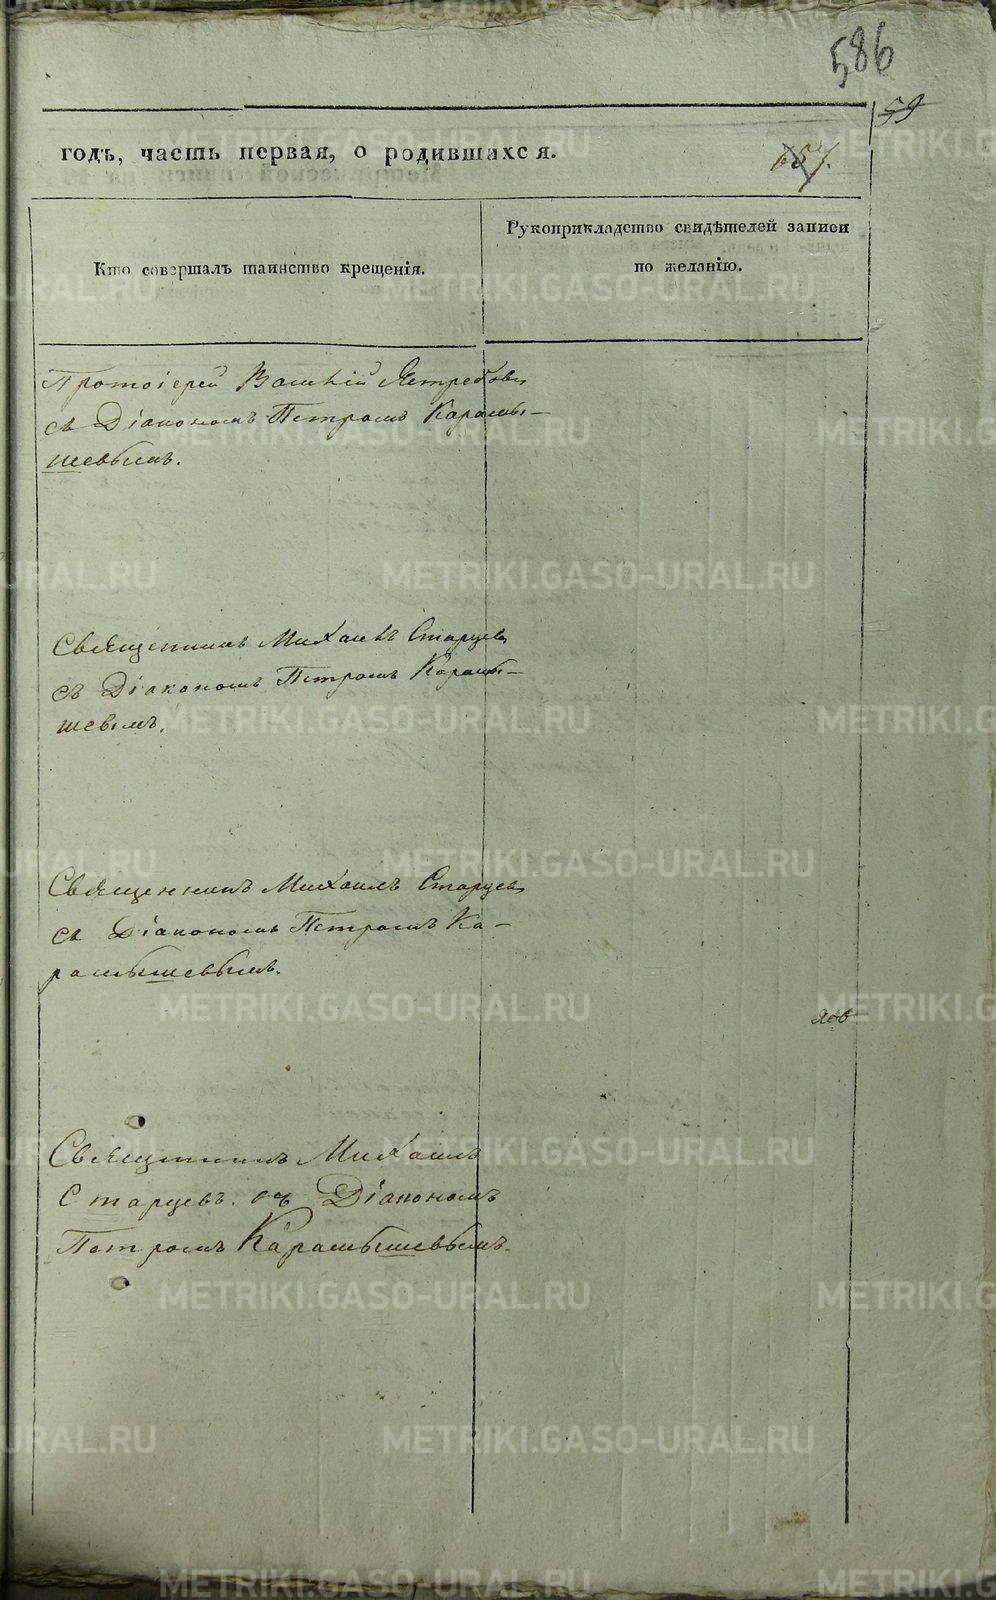 586
59
657.
годъ, часть первая, о родившихся.
Кто совершалъ таинство крещенія.
Рукоприкладство свидѣтелей записи
по желанію.
Протоіерей Василій Ястребовъ
съ Діакономъ Петромъ Карамы-
шевымъ.
Священникъ Михаилъ Старцевъ
съ Діакономъ Петромъ Карамы-
шевымъ.
Священникъ Михаилъ Старцевъ
съ Діакономъ Петромъ Ка-
рамышевымъ.
Священникъ Михаилъ
Старцевъ. съ Діакономъ
Петромъ Карамышевымъ.
METRIKI.GASO-URAL.RU